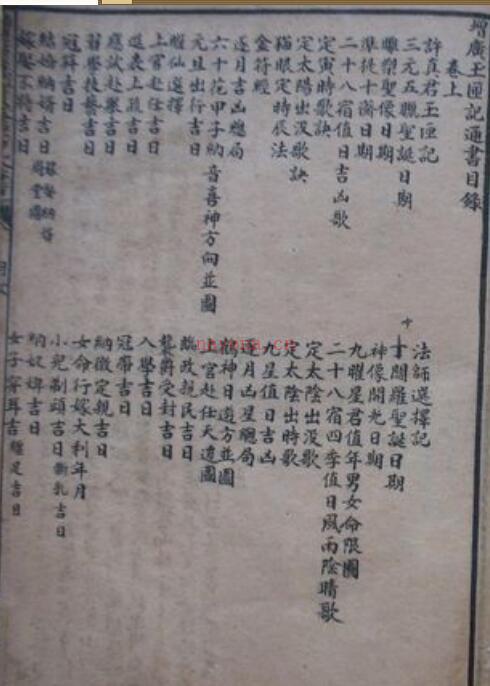 增廣玉匣記通書目錄
卷上
許真君玉匣記
法師選擇記
三元五臘聖誕日期
十閻羅聖誕日期
雕塑聖像日期
神像開光日期
準提十齋日期
九曜星君值年男女命限圖
二十八宿值日吉凶歌
二十八宿四季值日風雨陰晴歌
定寅時歌訣
定太陰出沒歌
定太陽出沒歌訣
定太陰出時歌
貓眼定時辰法
九星值日吉凶
金符經
逐月凶星總局
逐月吉凶總局
鶴神日遊方並圖
六十花甲子納音喜神方向並圖
上官赴任天遷圖
元旦出行吉日
臨政親民吉日
臞仙選擇
襲爵受封吉日
上官赴任吉日
入學吉日
進表上疏吉日
冠帶吉日
應試赴舉吉日
納徵定親吉日
習學技藝吉日
女命行嫁大利年月
冠笄吉日
小兒剃頭吉日斷乳吉日
結婚納婿吉日 嫁娶納婿周堂圖
納奴婢吉日
嫁娶不將吉日
女子穿耳吉 纏足吉日
nayona.cn